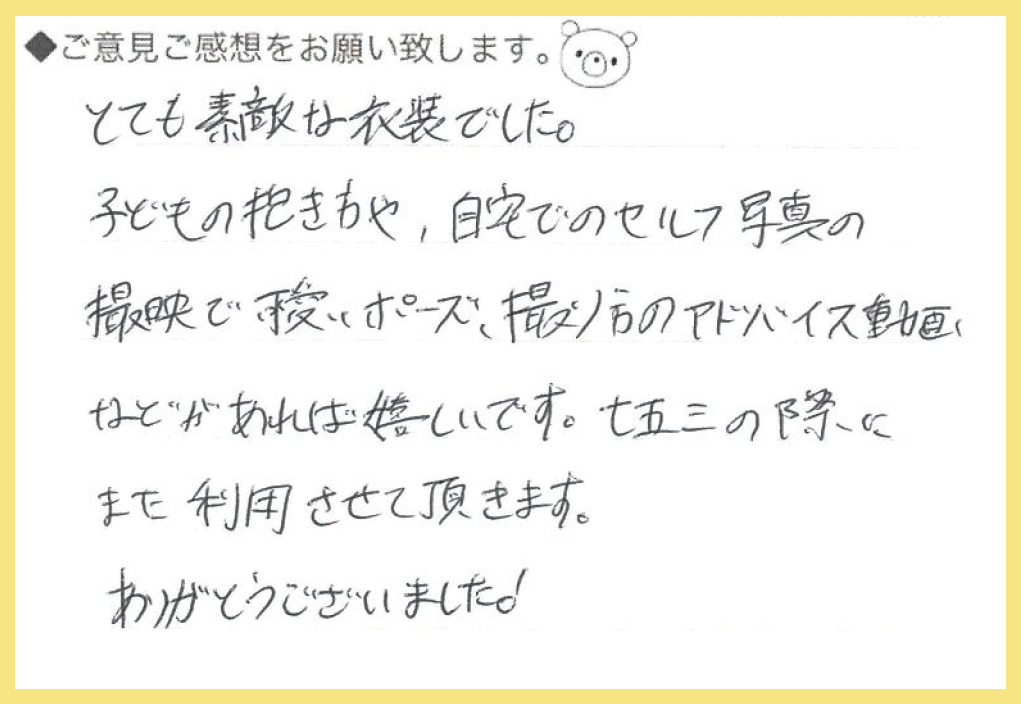 ◆ご意見ご感想をお願い致します。
とても素敵な衣装でした。
子どもの抱き方や,自宅でのセルフ写真の
撮映で可愛いポーズ、撮り方のアドバイス動画
などがあれば嬉しいです。七五三の際に
また利用させて頂きます。
ありがとうございました!